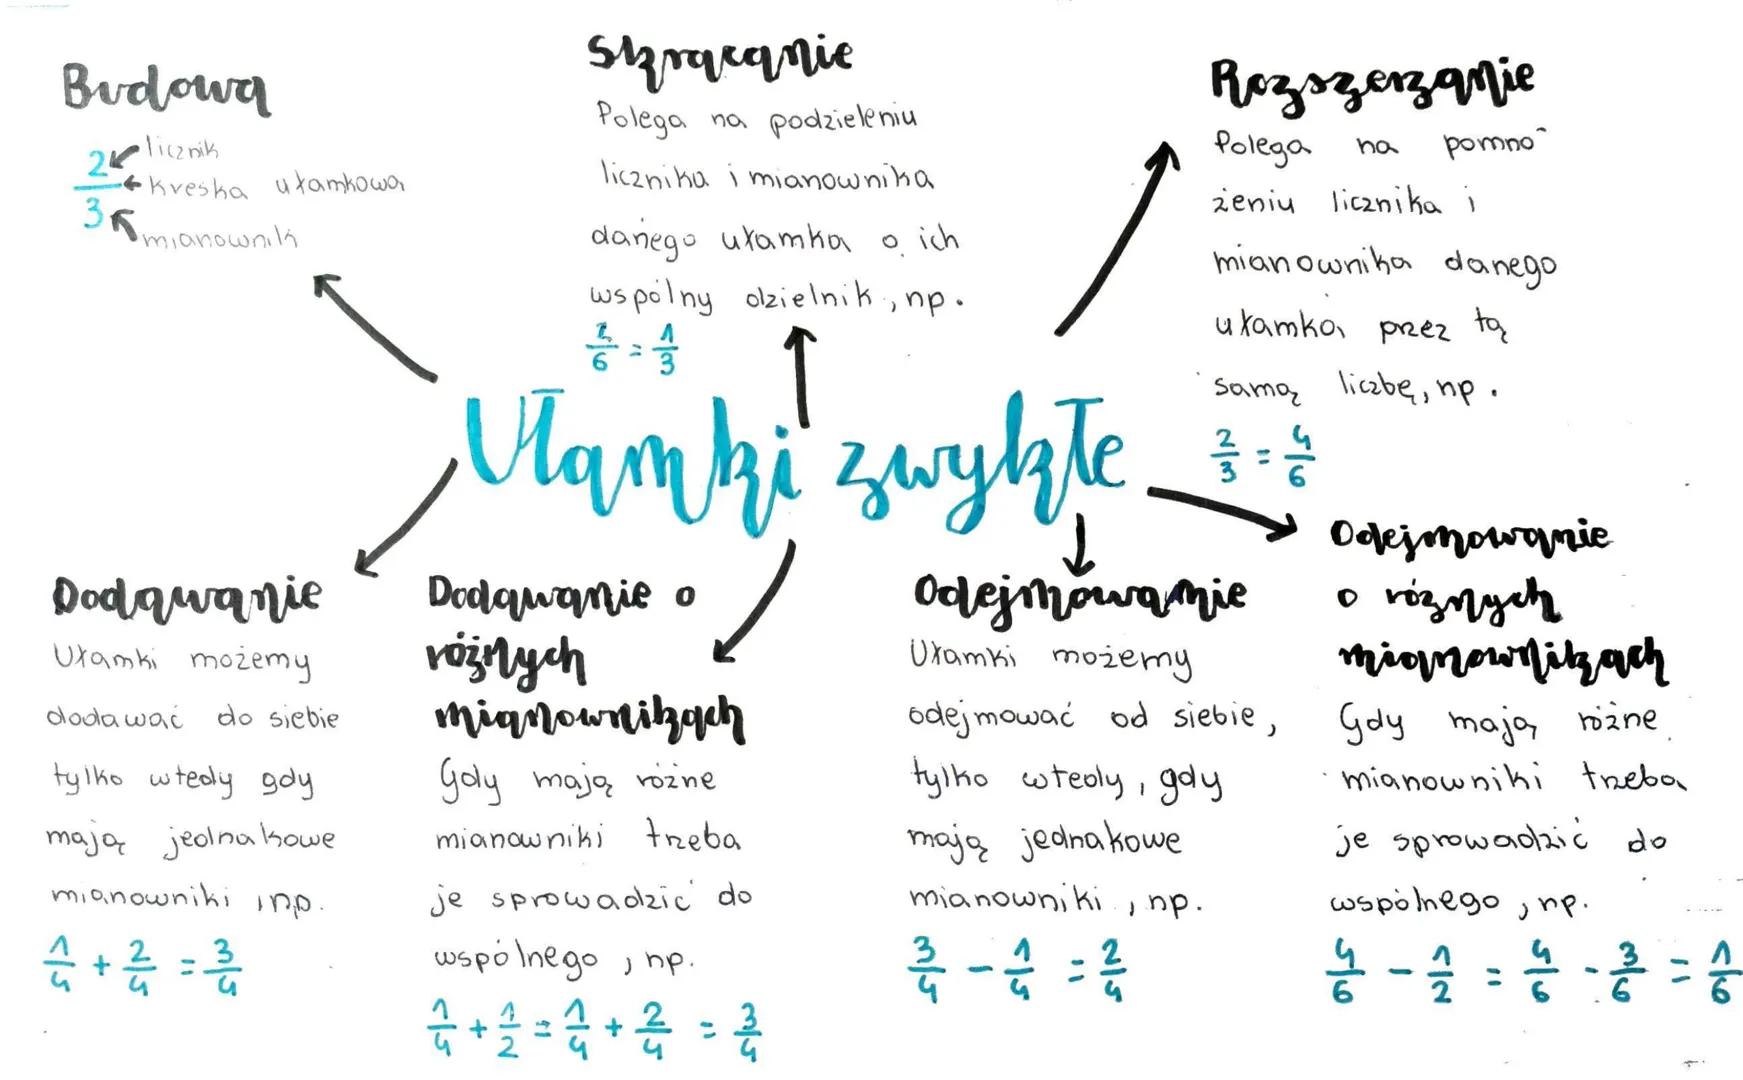 Budowa
2 licznik
kreska ułamkowa
3 mianownik
Skracanie
Polega na podzieleniu
licznika i mianownika
danego ułamka o ich
wspólny dzielnik, np.
2/6 = 1/3
Rozszerzanie
Polega na pomno-
żeniu licznika i
mianownika danego
ułamka przez tą
samą liczbę, np.
2/3 = 4/6
Ułamki zwykłe
Dodawanie
Ułamki możemy
dodawać do siebie
tylko wtedy gdy
mają jednakowe
mianowniki, np.
1/4 + 2/4 = 3/4
Dodawanie o
różnych
mianownikach
Gdy mają różne
mianowniki trzeba
je sprowadzić do
wspólnego, np.
1/4 + 1/2 = 1/4 + 2/4 = 3/4
Odejmowanie
Ułamki możemy
odejmować od siebie,
tylko wtedy, gdy
mają jednakowe
mianowniki, np.
3/4 - 1/4 = 2/4
Odejmowanie
o róznych
mianownikach
Gdy mają różne
mianowniki trzeba
je sprowadzić do
wspólnego, np.
4/6 - 1/2 = 4/6 - 3/6 = 1/6